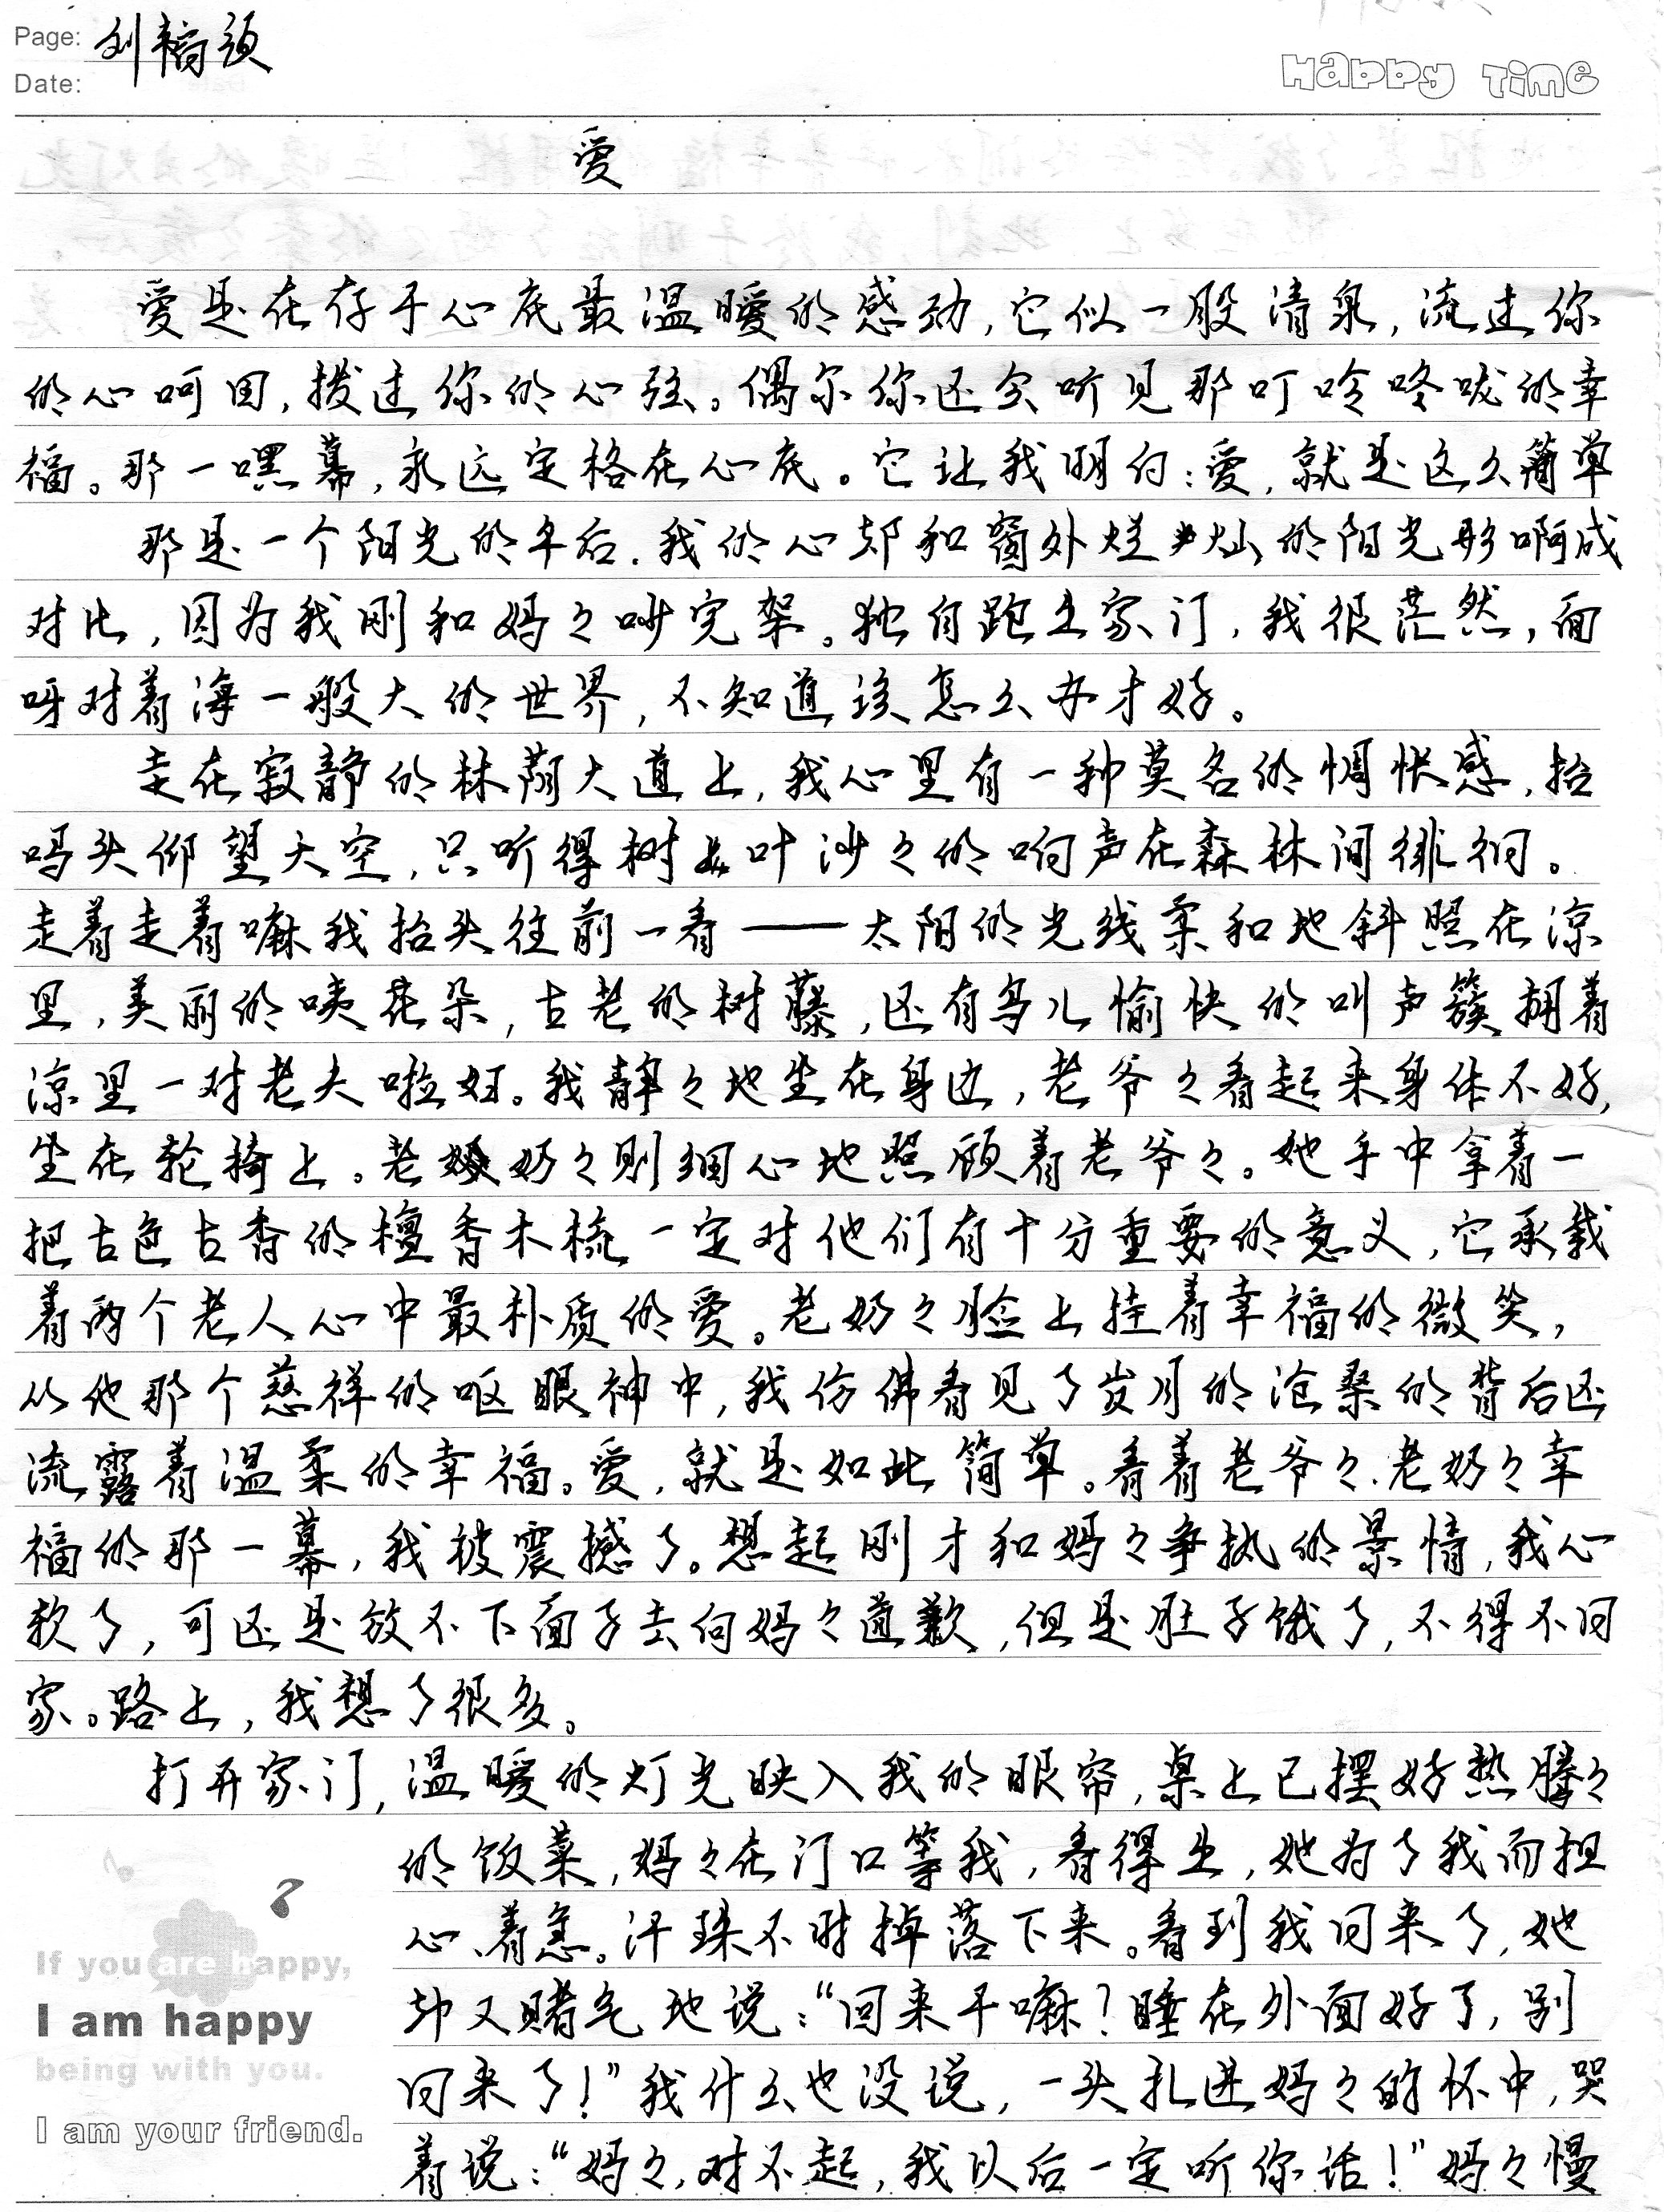 Page: 刘福颂
Date:
Happy Time
爱
爱是在存于心底最温暖的感动，它似一股清泉，流过你
的心呵田，拨过你的心弦。偶尔你还会听见那叮呤咚咙的幸
福。那一嘿幕，永远定格在心底。它让我明白：爱，就是这么简单
那是一个阳光的午后．我的心却和窗外烂灿的阳光形啊成
对比，因为我刚和妈々吵完架。独自跑出家门，我很茫然，面
呀对着海一般大的世界，不知道该怎么办才好。
走在寂静的林荫大道上，我心里有一种莫名的惆怅感，抬
吗头仰望天空，只听得树叶沙々的响声在森林间徘徊。
走着走着嘛我抬头往前一看——太阳的光线柔和地斜照在凉
里，美丽的咦花朵，古老的树藤，还有鸟儿愉快的叫声簇拥着
凉里一对老夫啦妇。我静々地坐在身边，老爷々看起来身体不好，
坐在轮椅上。老奶々则细心地照顾着老爷々。她手中拿着一
把古色古香的檀香木梳一定对他们有十分重要的意义，它承载
着两个老人心中最朴质的爱。老奶々脸上挂着幸福的微笑，
从他那个慈祥的呕眼神中，我仿佛看见了岁月的沧桑的背后还
流露着温柔的幸福。爱，就是如此简单。看着老爷々．老奶々幸
福的那一幕，我被震撼了。想起刚才和妈々争执的景情，我心
软了，可还是放不下面子去向妈々道歉，但是肚子饿了，不得不回
家。路上，我想了很多。
打开家门，温暖的灯光映入我的眼帘，桌上已摆好热腾々
的饭菜，妈々在门口等我，看得出，她为了我而担
心、着急。汗珠不时掉落下来。看到我回来了，她
却又赌气地说：“回来干嘛？睡在外面好了，别
回来了！”我什么也没说，一头扎进妈々的怀中，哭
着说：“妈々，对不起，我以后一定听你话！”妈々慢
If you are happy,
I am happy
being with you.
I am your friend.